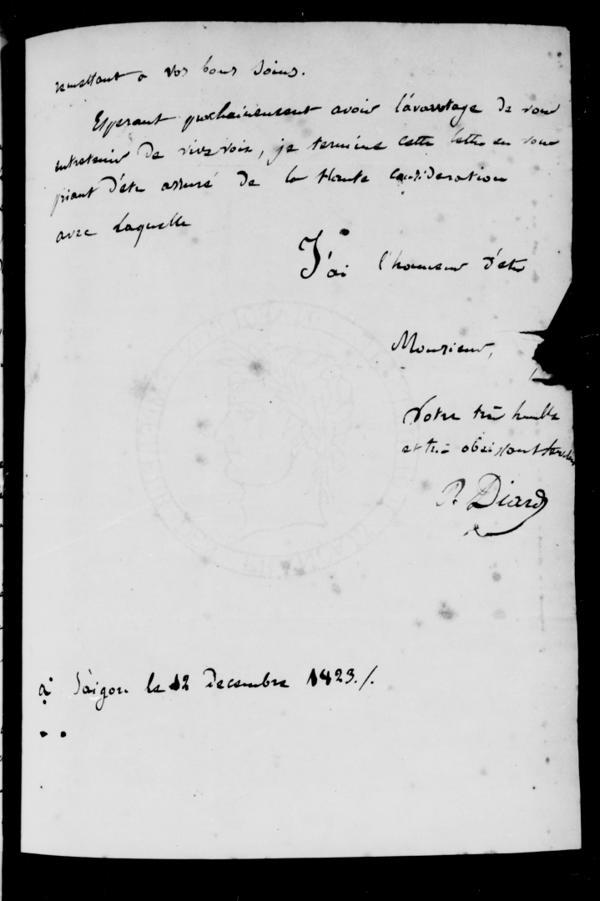 remettant a vos bons soins.
Esperant prochainement avoir l'avantage de vous
entretenir de vive voix, je termine cette lettre en vous
priant d'être assuré de la Haute consideration
avec laquelle
J'ai l'honneur d'etre
Monsieur,
Votre très humble
et très obeissant serviteur
P. Diard
à Saigon le 12 Decembre 1823./.